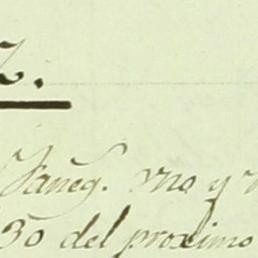 z.
Yañeg. vno y
30 del proximo